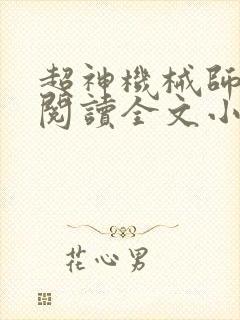 超神機械師
閱讀全文小
花心男